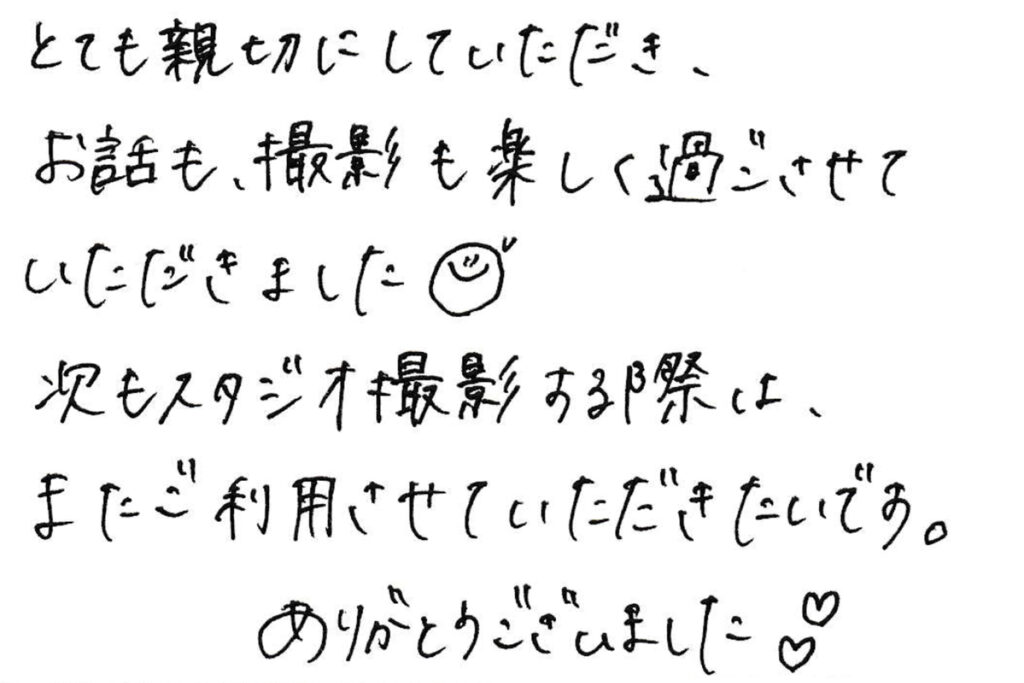 とても親切にしていただき、
お話も、撮影も楽しく過ごさせて
いただきました
次もスタジオ撮影する際は、
またご利用させていただきたいです。
ありがとうございました♡♡